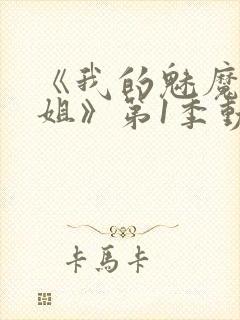 《我的魅魔
姐》第1季動
卡馬卡